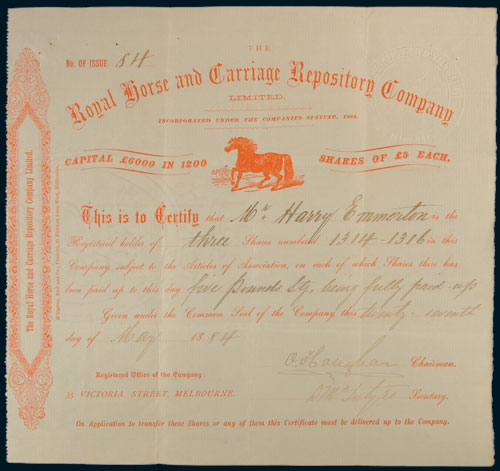 THE
No. OF ISSUE 84
Royal Horse and Carriage Repository Company
LIMITED.
INCORPORATED UNDER THE COMPANIES STATUTE, 1864.
CAPITAL £6000 IN 1200 SHARES OF £5 EACH.
This is to Certify that Mr. Harry Emmerton is the
Registered holder of three Shares numbered 1314-1316 in this
Company subject to the Articles of Association, on each of which Shares there has
been paid up to this day five Pounds Stg. being fully paid-up
Given under the Common Seal of the Company this twenty-seventh
day of May 1884
Chairman.
Registered Office of the Company:
VICTORIA STREET, MELBOURNE.
McIntyre Secretary.
On Application to transfer these Shares or any of them this Certificate must be delivered up to the Company.
The Royal Horse and Carriage Repository Company Limited.